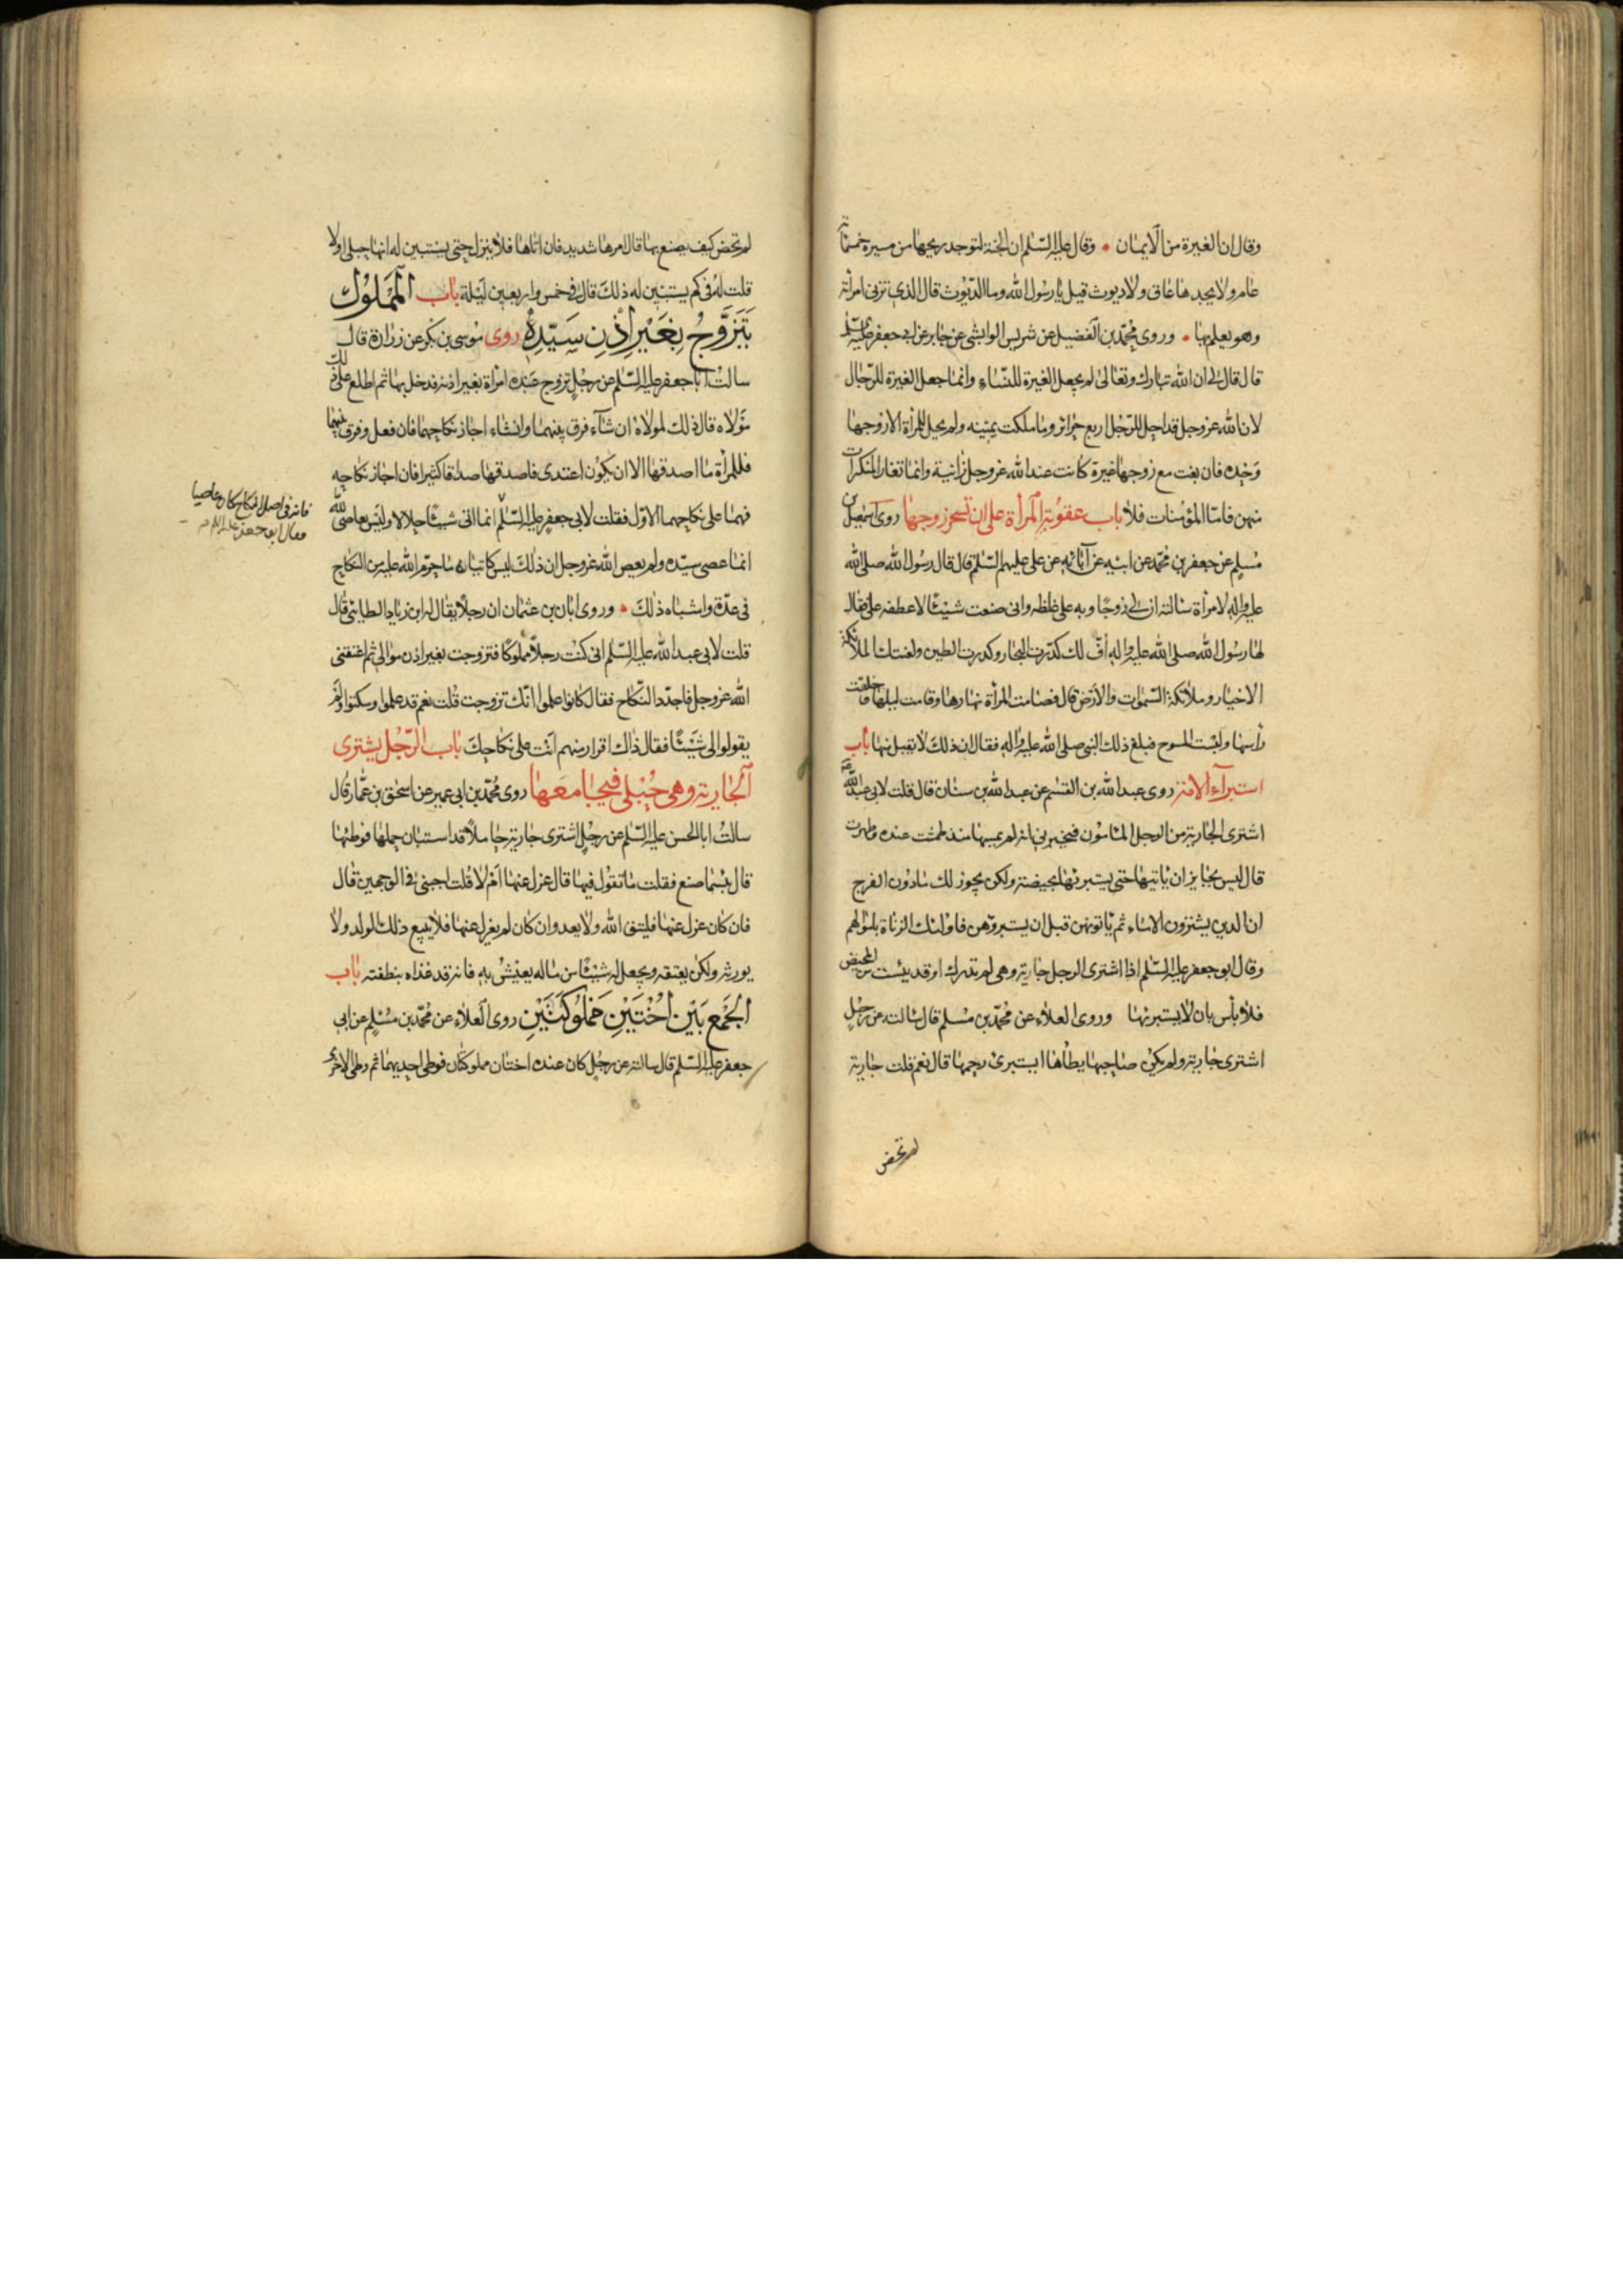 وقال ان الغيرة من الايمان • وقال عليه السلم ان الجنة لتوجد ريحها من مسيرة خمسمائة
عام ولا يجدها عاق ولا ديوث قيل يا رسول الله وما الديوث قال الذي تزنى امرأته
وهو يعلم بها • وروى محمد بن الفضيل عن شريس الوابشي عن جابر عن ابي جعفر عليه السلم
قال قال لي ان الله تبارك وتعالى لم يجعل الغيرة للنساء وانما جعل الغيرة للرجال
لان الله عز وجل قد احل للرجل اربع حرائر وما ملكت يمينه ولم يحل للمرأة الا زوجها
وحده فان بغت مع زوجها غيره كانت عند الله عز وجل زانية وانما تغار المنكرات
منهن فاما المؤمنات فلا باب عقوبة المرأة على ان تسحر زوجها روى اسمعيل بن
مسلم عن جعفر بن محمد عن ابيه عن آبائه عن علي عليهم السلم قال قال رسول الله صلى الله
عليه واله لامرأة سألته ان لي زوجا وبه على غلظة واني صنعت شيئا لاعطفه علي فقال
لها رسول الله صلى الله عليه واله أف لك كدرت البحار وكدرت الطين ولعنتك الملائكة
الاخيار وملائكة السموات والارض قال فصامت المرأة نهارها وقامت ليلها وحلقت
رأسها ولبست المسوح فبلغ ذلك النبي صلى الله عليه واله فقال ان ذلك لا يقبل منها باب
استبراء الامة روى عبد الله بن القسم عن عبد الله بن سنان قال قلت لابي عبد الله ع
اشترى الجارية من الرجل المأمون فيخبرني انه لم يمسها منذ طمثت عنده وطهرت
قال ليس بجايز ان يأتيها حتى يستبرئها بحيضة ولكن يجوز لك ما دون الفرج
ان الذين يشترون الاماء ثم يأتونهن قبل ان يستبروهن فاولئك الزناة باموالهم
وقال ابو جعفر عليه السلم اذا اشترى الرجل جارية وهي لم تدرك او قد يئست من المحيض
فلا بأس بان لا يستبرئها وروى العلاء عن محمد بن مسلم قال سألته عن رجل
اشترى جارية ولم يكن صاحبها يطأها ايستبرئ رحمها قال نعم قلت جارية
لم تحض
لم تحض كيف يصنع بها قال امرها شديد فان اتاها فلا ينزل حتى يستبين له انها حبلى اولا
قلت له في كم يستبين له ذلك قال في خمس واربعين ليلة باب المملوك
يتزوج بغير اذن سيده روى موسى بن بكر عن زرارة قال
سالت ابا جعفر عليه السلم عن رجل تزوج عبده امرأة بغير اذنه فدخل بها ثم اطلع على ذلك
مولاه قال ذلك لمولاه ان شاء فرق بينهما وان شاء اجاز نكاحهما فان فعل وفرق بينهما
فللمرأة ما اصدقها الا ان يكون اعتدى فاصدقها صداقا كثيرا فان اجاز نكاحه
فهما على نكاحهما الاول فقلت لابي جعفر عليه السلم انما اتى شيئا حلالا وليس بعاص لله
فانه في اصل النكاح كان عاصيا
فقال ابو جعفر عليه السلم
انما عصى سيده ولم يعص الله عز وجل ان ذلك ليس كاتيانه ما حرم الله عليه من النكاح
في عدة واشباه ذلك • وروى ابان بن عثمان ان رجلا يقال له ابن زياد الطائي قال
قلت لابي عبد الله عليه السلم اني كنت رجلا مملوكا فتزوجت بغير اذن موالي ثم اعتقني
الله عز وجل فاجدد النكاح فقال كانوا علموا انك تزوجت قلت نعم قد علموا وسكتوا ولم
يقولوا لي شيئا فقال ذاك اقرار منهم انت على نكاحك باب الرجل يشترى
الجارية وهي حبلى فيجامعها روى محمد بن ابي عمير عن اسحق بن عمار قال
سالت ابا الحسن عليه السلم عن رجل اشترى جارية حاملا قد استبان حملها فوطئها
قال بئسما صنع فقلت ما تقول فيها قال عزل عنها ام لا قلت اجبني في الوجهين قال
فان كان عزل عنها فليتق الله ولا يعد وان كان لم يعزل عنها فلا يبيع ذلك الولد ولا
يورثه ولكن يعتقه ويجعل له شيئا من ماله يعيش به فانه قد غذاه بنطفته باب
الجمع بين اختين مملوكتين روى العلاء عن محمد بن مسلم عن ابي
جعفر عليه السلم قال سالته عن رجل كان عنده اختان مملوكتان فوطى احديهما ثم وطى الاخرى